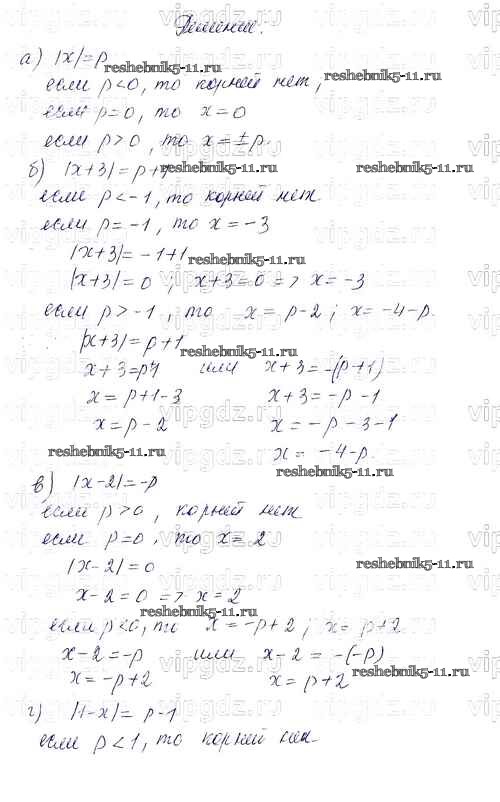 Решение.
а) |x|=p
если p<0, то корней нет,
если p=0, то x=0
если p>0, то x=±p.
б) |x+3|=p+1
если p<-1, то корней нет.
если p=-1, то x=-3
|x+3|=-1+1
|x+3|=0; x+3=0=> x=-3
если p>-1, то x=p-2; x=-4-p.
|x+3|=p+1
x+3=p+1 или x+3=-(p+1)
x=p+1-3 x+3=-p-1
x=p-2 x=-p-3-1
x=-4-p.
в) |x-2|=-p
если p>0, корней нет
если p=0, то x=2
|x-2|=0
x-2=0 => x=2
если p<0, то x=-p+2; x=p+2
x-2=-p или x-2=-(-p)
x=-p+2 x=p+2
г) |1-x|=p-1
если p<1, то корней нет.
reshebnik5-11.ru
vipgdz.ru